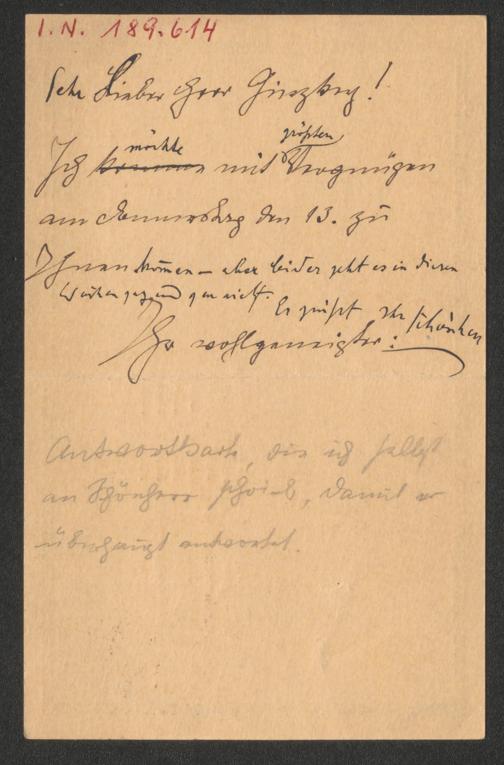 I.N. 189.614
Sehr Lieber Herr Ginzkey!
möchte größten
Ich komme mit Vergnügen
am Donnerstag den 13. zu
Ihnen kommen – aber leider geht es in diesen
Wochen gar nicht.
Es grüßt Sie
Ihr wohlgeneigter: Schönherr
Antwortkarte, die ich selbst
an Schönherr schrieb, damit er
überhaupt antwortet.